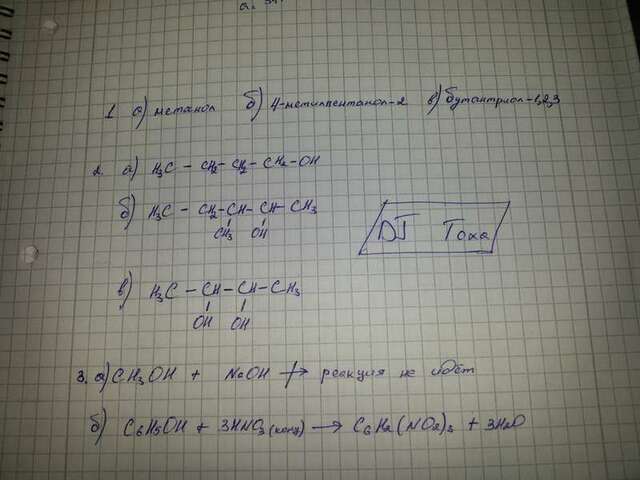 1 а) метанол б) 4-метилпентанол-2 в) бутантриол-1,2,3
2. а) H3C - CH2 - CH2 - CH2 - OH
б) H3C - CH2 - CH - CH - CH3
CH3 OH
DJ Тоха
в) H3C - CH - CH - CH3
OH OH
3. а) CH3OH + NaOH → реакция не идёт
б) C6H5OH + 3HNO3 (конц) → C6H2(NO2)3 + 3H2O